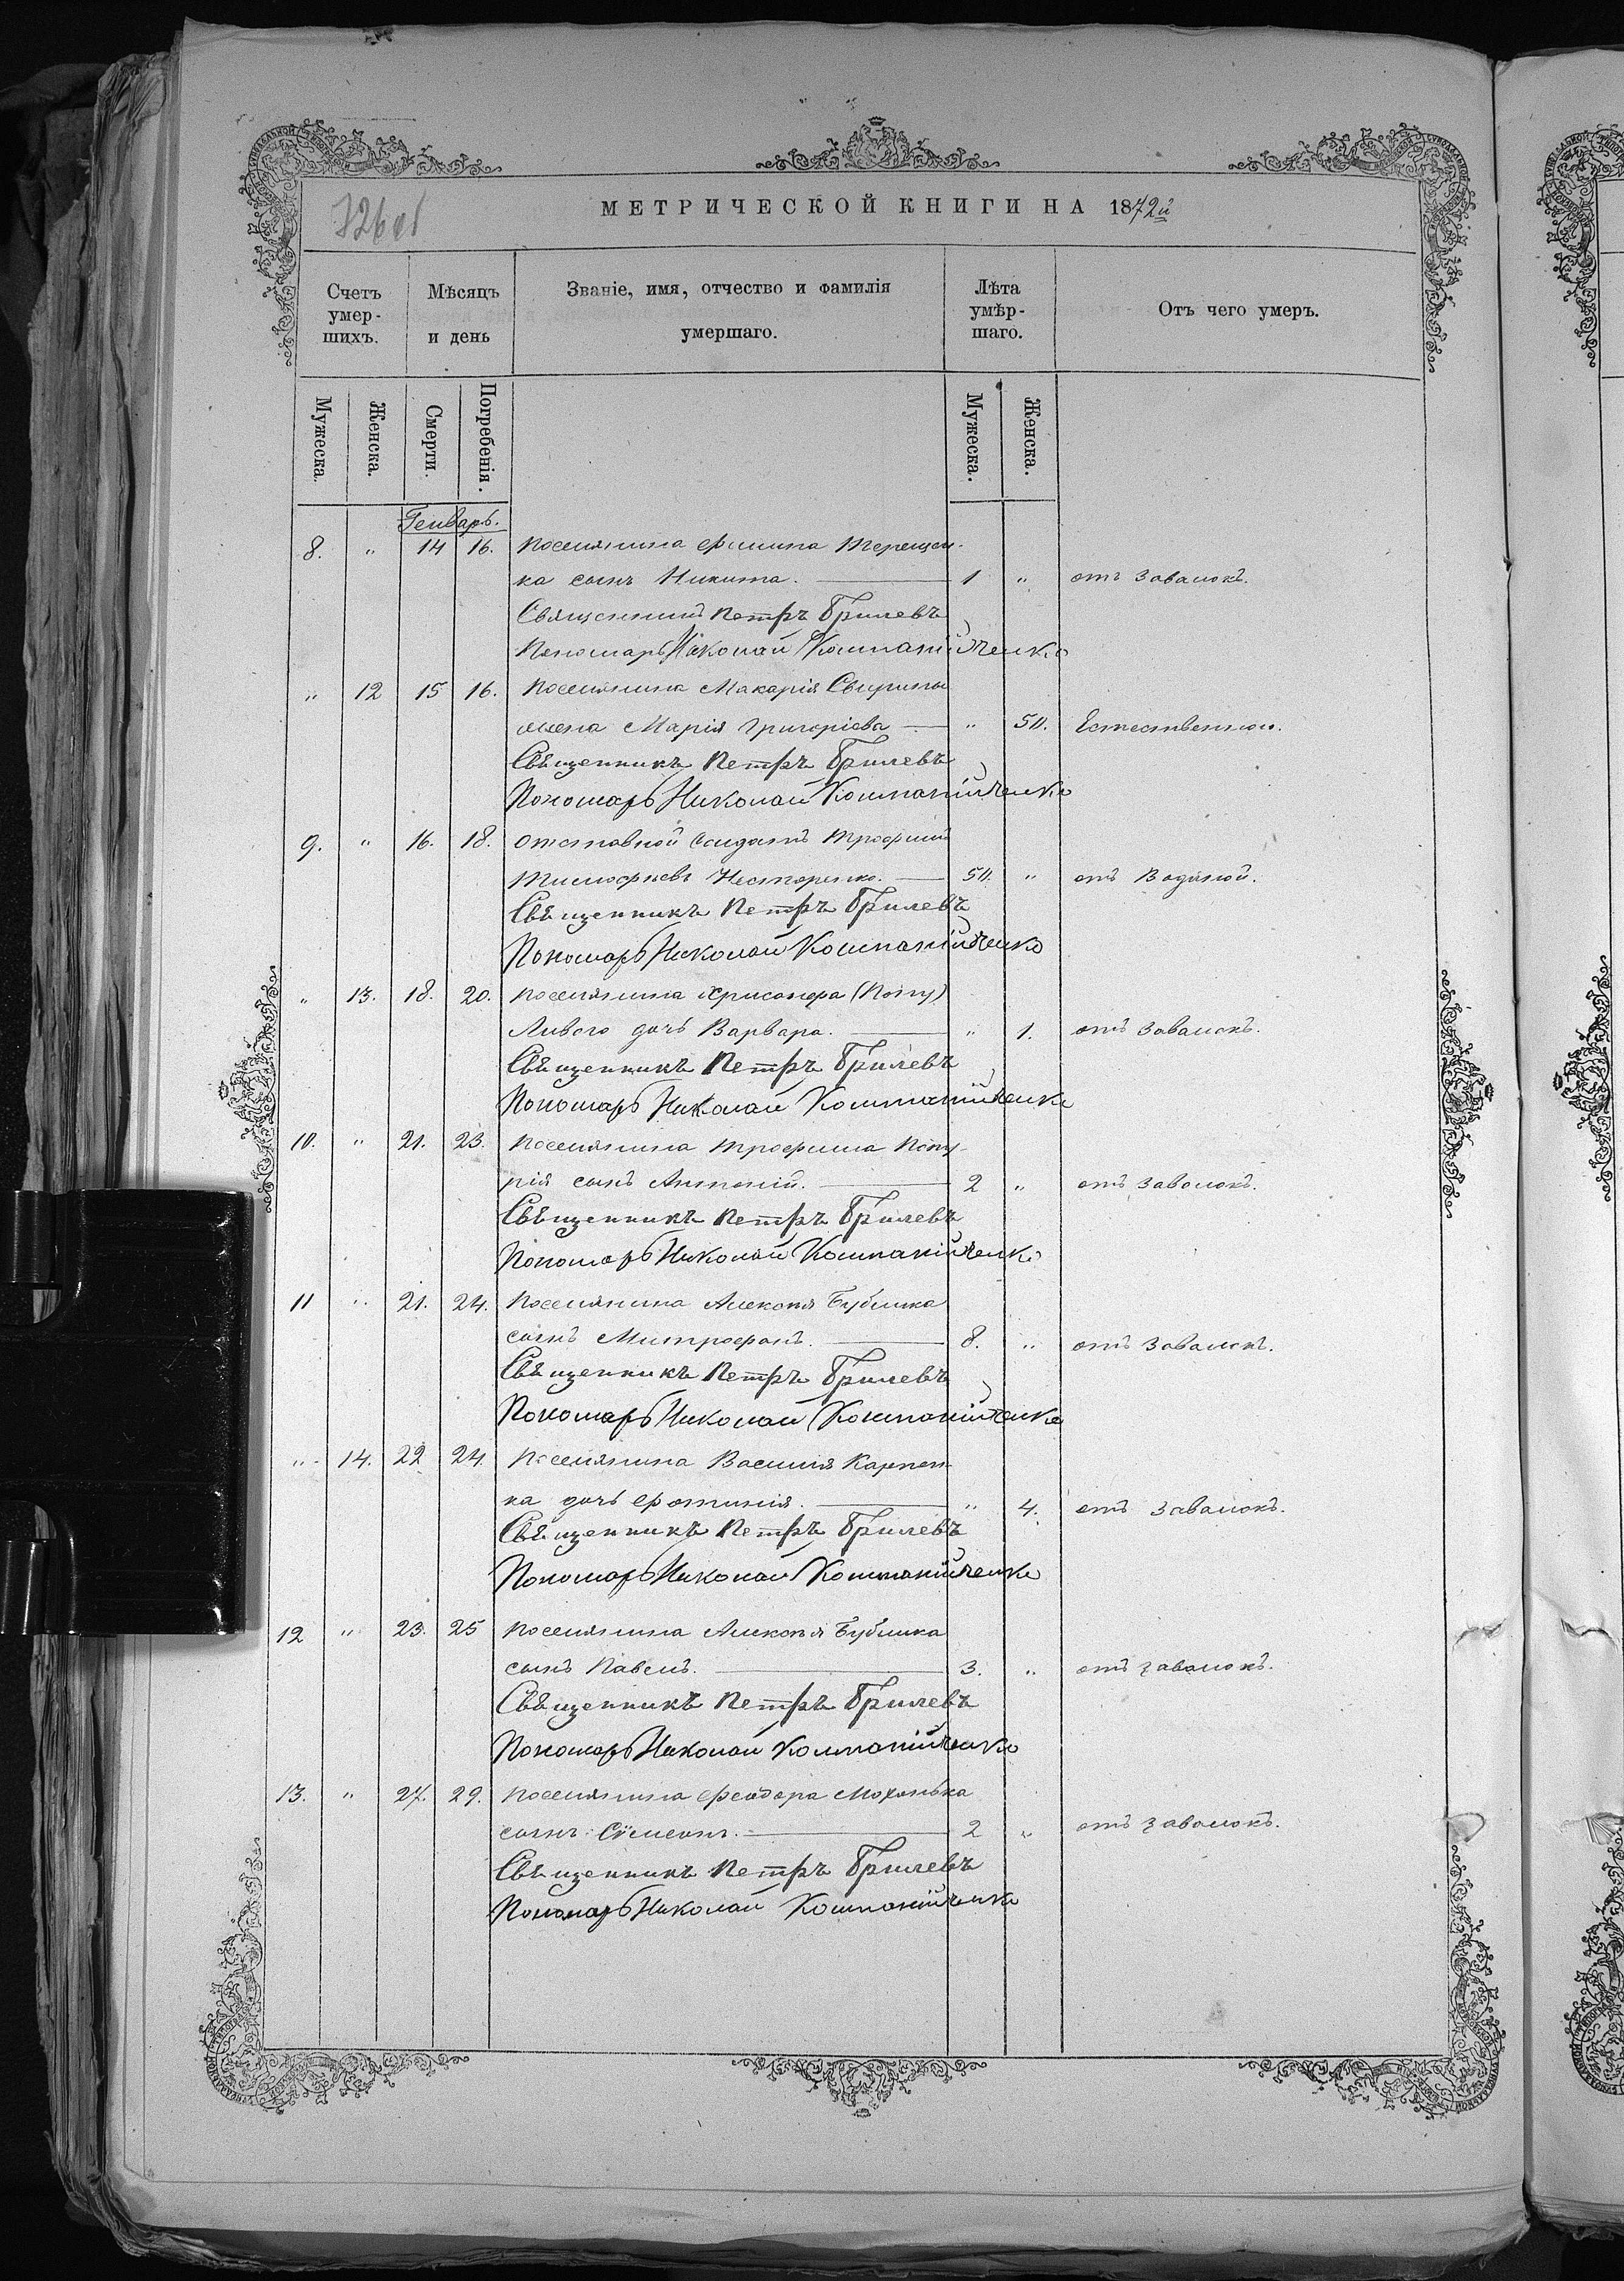 726об
МЕТРИЧЕСКОЙ КНИГИ НА 1872й
Счетъ умер-шихъ.
Мѣсяцъ и день
Званіе, имя, отчество и фамилія умершаго.
Лѣта умѣр-шаго.
Отъ чего умеръ.
Мужеска. Женска. Смерти. Погребенія. Мужеска. Женска.
Генварь.
8. " 14 16. Поселянина Филипа Терещен-
ка сынъ Никита. 1 " отъ завалокъ.
Священникъ Петръ Брилевъ
Пономарь Николай Компанійченко
" 12 15 16. Поселянина Макарія Свирины
жена Марія Григоріева " 50. Естественной.
Священникъ Петръ Брилевъ
Пономарь Николай Компанійченко
9. " 16. 18. Отставной Солдатъ Трофимъ
Тимофѣевъ Нестеренко. 50. " отъ Водяной.
Священникъ Петръ Брилевъ
Пономарь Николай Компанійченко
" 13. 18. 20. Поселянина Хрисанфа (Полу)
Ливого дочь Варвара. " 1. отъ завалокъ.
Священникъ Петръ Брилевъ
Пономарь Николай Компанійченко
10. " 21. 23. Поселянина Трофима
сынъ Антоній. 2 " отъ завалокъ.
Священникъ Петръ Брилевъ
Пономарь Николай Компанійченко
11 " 21. 24. Поселянина Алексѣя Бублика
сынъ Митрофанъ. 8. " отъ завалокъ.
Священникъ Петръ Брилевъ
Пономарь Николай Компанійченко
" 14. 22 24. Поселянина Василія Карпен-
ка дочь Фотинія. " 4. отъ завалокъ.
Священникъ Петръ Брилевъ
Пономарь Николай Компанійченко
12 " 23. 25 Поселянина Алексѣя Бублика
сынъ Павелъ. 3. " отъ завалокъ.
Священникъ Петръ Брилевъ
Пономарь Николай Компанійченко
13. " 27. 29. Поселянина Феодора Мохонька
сынъ Сѵмеонъ. 2 " отъ завалокъ.
Священникъ Петръ Брилевъ
Пономарь Николай Компанійченко